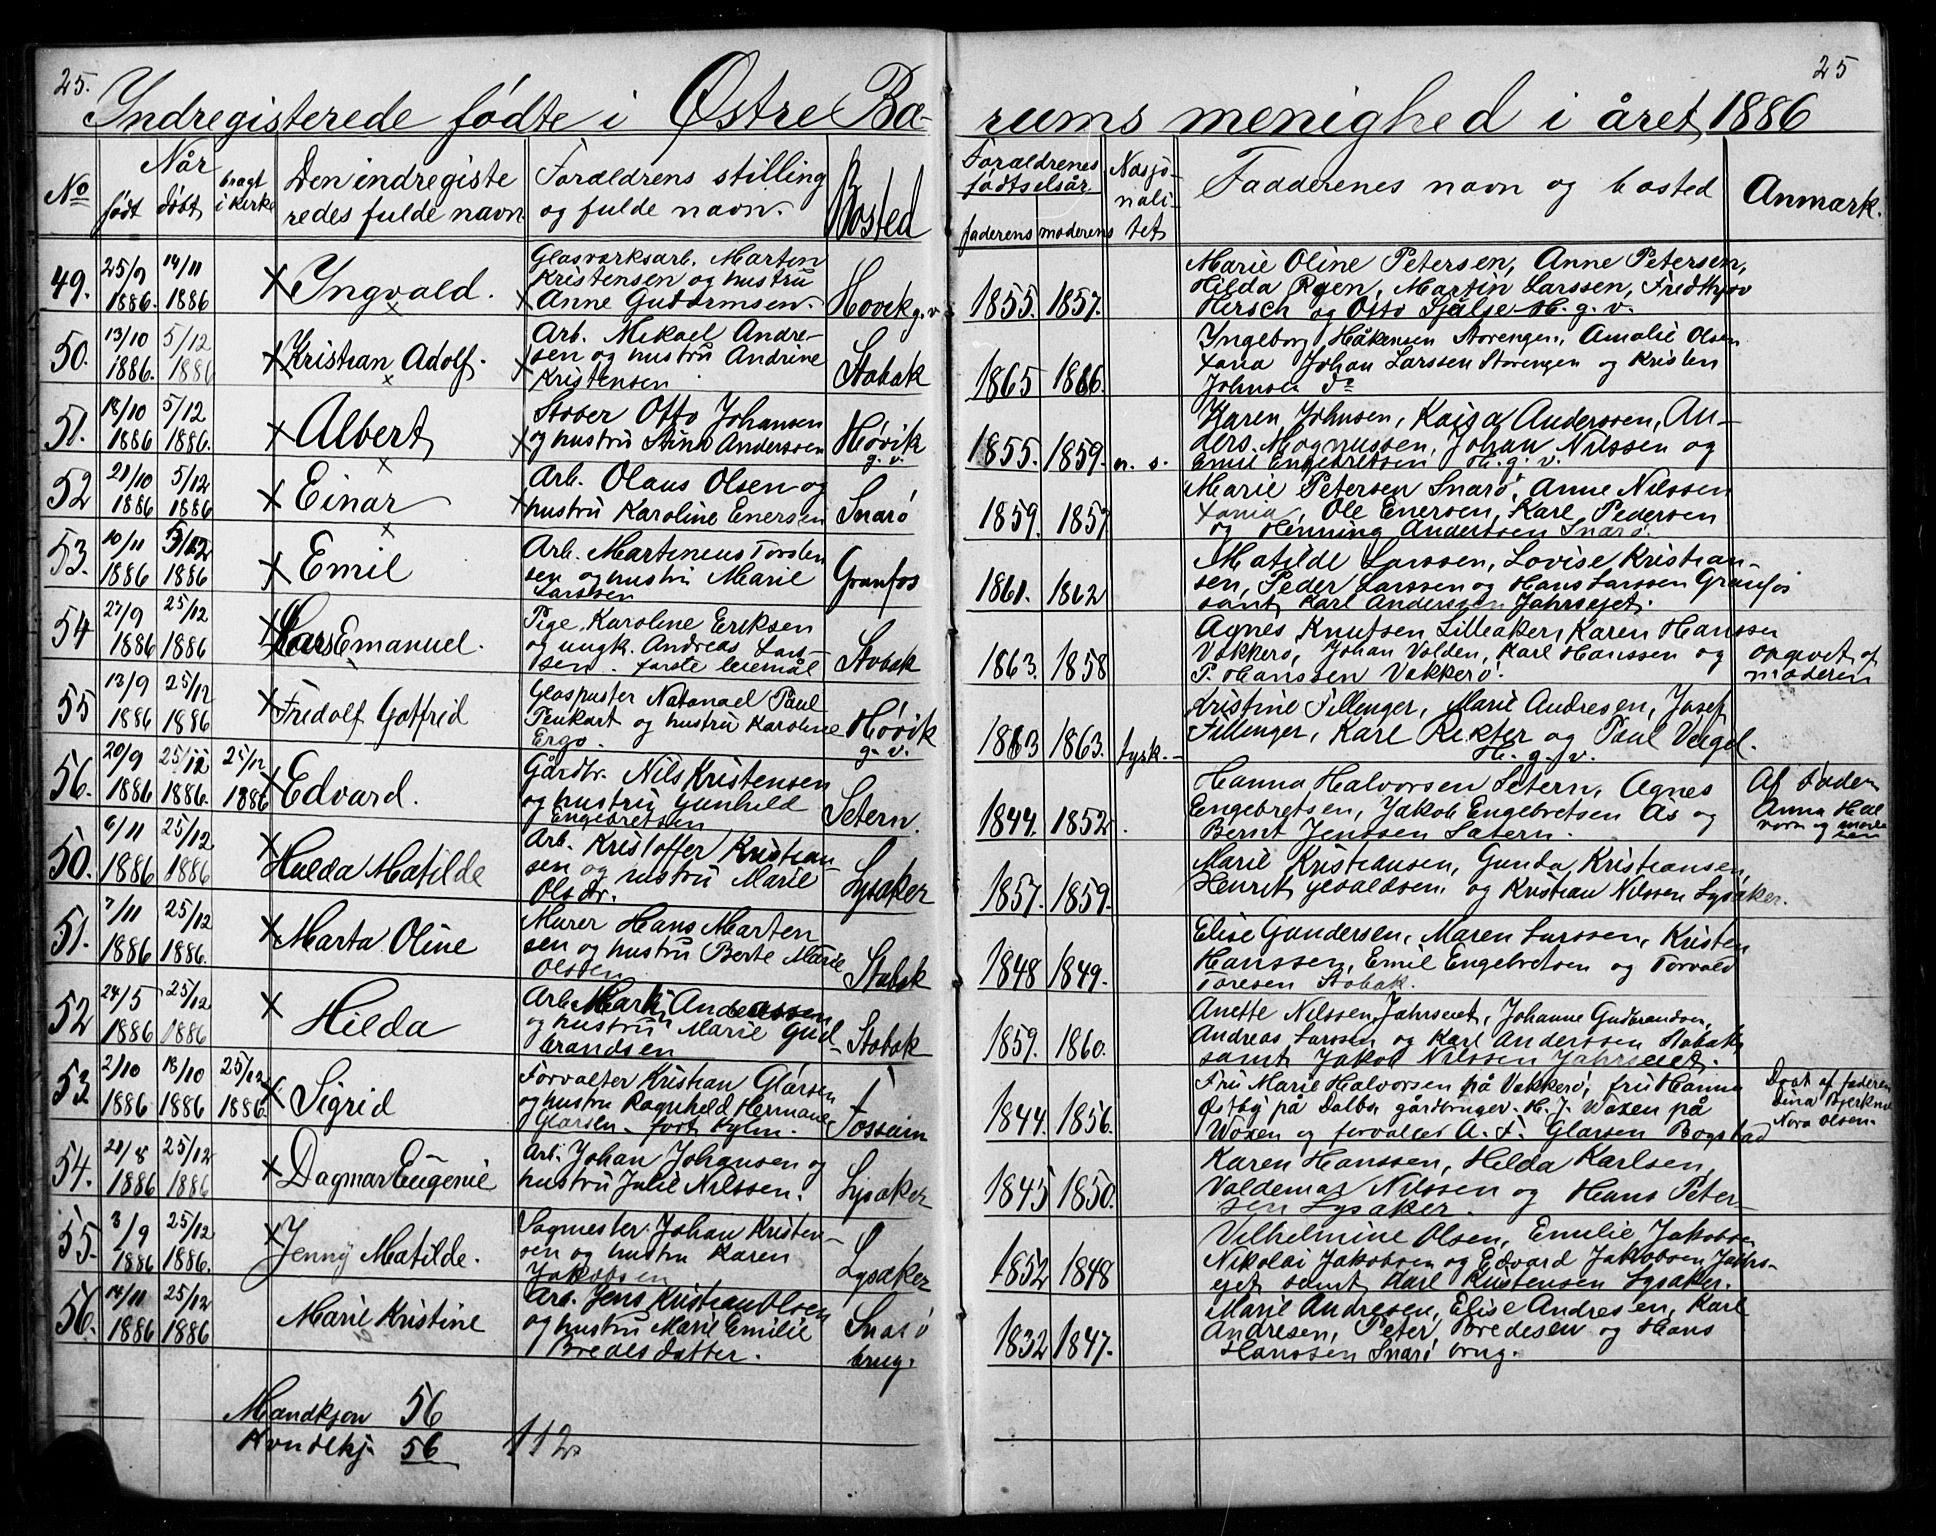 25.
25
Indregisterede fødte i Østre Bæ-
rums menighed i året 1886
No
Når
født
døbt
bragt i kirke
Den indregiste
redes fulde navn
Forældrens stilling
og fulde navn.
Bosted
Forældrenes
fødtselsår.
faderens
moderens
Nasjo-
nali-
tet
Fadderenes navn og bosted
Anmærk.
49.
25/9 1886.
14/11 1886
Ingvald.
Glasværksarb. Marten
Kristensen og hustru
Anne Guttormsen.
Høvik g. v.
1855.
1857.
Marie Oline Petersen, Anne Petersen,
Hilda Roen, Martin Larssen, Fredthjov
Hersch og Otto Sjølse H. g. v.
50.
13/10 1886.
5/12 1886
Kristian Adolf.
Arb. Mikael Andre-
sen og hustru Andrine
Kristensen
Stabæk
1865
1866.
Ingeborg Håkensen Storengen, Amalie Olsen
xania Johan Larssen Storengen og Kristen
Johnsen do
51.
18/10 1886
5/12 1886.
Albert
Støber Otto Johansen
og hustru Stina Anderssen
Høvik g. v.
1855.
1859.
n. s.
Karen Johnsen, Kajsa Anderssen, An-
ders Magnussen, Johan Nilssen og
Emil Engebretssen H. g. v.
52
21/10 1886
5/12 1886
Einar
Arb. Olaus Olsen og
hustru Karoline Enersen
Snarø
1859.
1857
Marie Petersen Snarø, Anne Nilssen
xania, Ole Enersen, Karl Pedersen
og Henning Anderssen Snarø.
53.
10/11 1886
5/12 1886
Emil
Arb. Martineus Torsten
sen og hustru Marie
Larssen
Granfos
1861.
1862
Matilde Larssen, Lovise Kristian-
sen, Peder Larssen og Hans Larssen Granfos
samt Karl Anderssen Jahrsejet.
54
27/9 1886
25/12 1886
Lars Emanuel.
Pige Karoline Eriksen
og ungk. Andreas Lars-
sen. første leiemål
Stabæk
1863.
1858
Agnes Knutsen Lilleaker, Karen Hanssen
Vækkerø, Johan Volden, Karl Hanssen og
P. Hanssen Vækkerø.
opgivet af
moderen
55
13/9 1886
25/12 1886
Fredolf Gotfrid
Glaspuster Natanael Paul
Penkart og hustru Karoline
Ergo.
Høvik g. v.
1863
1863.
tysk.
Kristine Fillenger, Marie Andresen, Josef
Fillenger, Karl Rikter og Paul Veigel.
H. g. v.
56.
20/9 1886
25/12 1886.
25/12 1886
Edvard.
Gårdbr. Nils Kristensen
og hustru Gunhild
Engebretsen
Setern.
1844.
1852
Hanna Halvorsen Setern, Agnes
Engebretsen, Jakob Engebretsen Ås og
Bernt Jenssen Sætern.
Af
Anna Hal
vorn og
50.
6/11 1886
25/12 1886
Hulda Matilde
Arb. Kristoffer Kristian-
sen og hustru Marie
Olsdr.
Lysaker
1857.
1859.
Marie Kristiansen, Gunda Kristiansen,
Henret og Kristian Nilssen Lysaker.
51.
7/11 1886
25/12 1886.
Marta Oline
Murer Hans Marten
sen og hustru Berte Marie
Olssen
Stabæk
1848
1849.
Elise Gundersen, Maren Larssen, Kristen
Hanssen, Emil Engebretsen og Torvald
Toresen Stabæk.
52
24/5 1886
25/12 1886
Hilda
Arb. Martin Anderssen
og hustru Marie Gud-
brandsen
Stabæk
1859.
1860.
Anette Nilssen Jahrseiet, Johanne Gudbrandsen,
Andreas Larssen og Karl Anderssen Stabæk
samt Jakob Nilssen Jahrseiet.
53
2/10 1886
18/10 1886
25/12 1886.
Sigrid
Forvalter Kristian Glørsen
og hustru Ragnhild Hermane
Glørsen født Hylm.
Fossum
1844.
1856.
Fru Marie Halvorsen på Vækkerø, fru Hanna
Østby på Dalbo gårdbruger H. J. Woxen på
Woxen og forvalter A. F. Glørsen Bogstad
Døbt af faderen
Dina Bjerkne
Nora Olsen.
54.
21/8 1886
25/12 1886
Dagmar Eugenie
Arb. Johan Johansen og
hustru Julie Nilssen.
Lysaker
1845
1850.
Karen Hanssen, Hilda Karlsen,
Valdemar Nilssen og Hans Peter-
sen Lysaker.
55.
3/9 1886
25/12 1886.
Jenny Matilde.
Sagmester Johan Kristen-
sen og hustru Karen
Jakobsen
Lysaker
1852
1848
Vilhelmine Olsen, Emilie Jakobsen
Nikolai Jakobsen og Edvard Jakobsen Jahrs-
ejet samt Karl Kristensen Lysaker.
56.
14/11 1886
25/12 1886
Marie Kristine
Arb. Jens Kristian Olsen
og hustru Marie Emilie
Bredesdatter.
Snarø
brug.
1832
1847.
Marie Andresen, Elise Andresen, Karl
Andresen, Peter Bredesen og Hans
Hanssen Snarø brug.
Mandkjøn 56
Kvindekj. 56
112